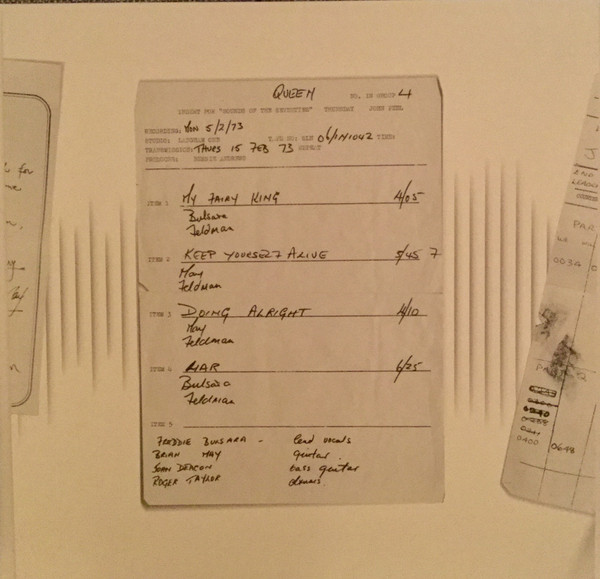 QUEEN
NO. IN GROUP 4
"SOUNDS OF THE SEVENTIES" THURSDAY JOHN PEEL
RECORDING: MON 5/2/73
STUDIO: LANGHAM ONE TIME:
TRANSMISSION: THURS 15 FEB 73 REPEAT
PRODUCER: BERNIE ANDREWS
ITEM 1 MY FAIRY KING 4/05
Bulsara
Feldman
ITEM 2 KEEP YOURSELF ALIVE 3/45 7
May
Feldman
ITEM 3 DOING ALRIGHT 4/10
May
Feldman
ITEM 4 LIAR 6/25
Bulsara
Feldman
ITEM 5
FREDDIE BULSARA - lead vocals
BRIAN MAY guitar
JOHN DEACON bass guitar
ROGER TAYLOR drums.
J
END
PAR
0034
0400 0648